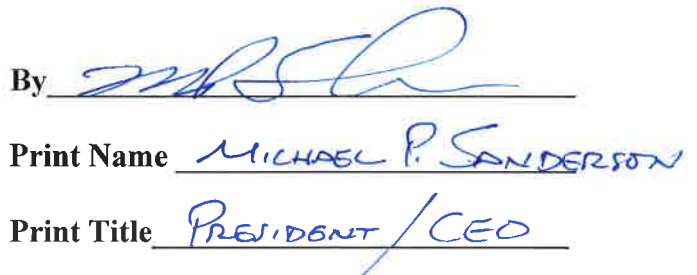 By
Print Name MICHAEL P. SANDERSON
Print Title PRESIDENT / CEO